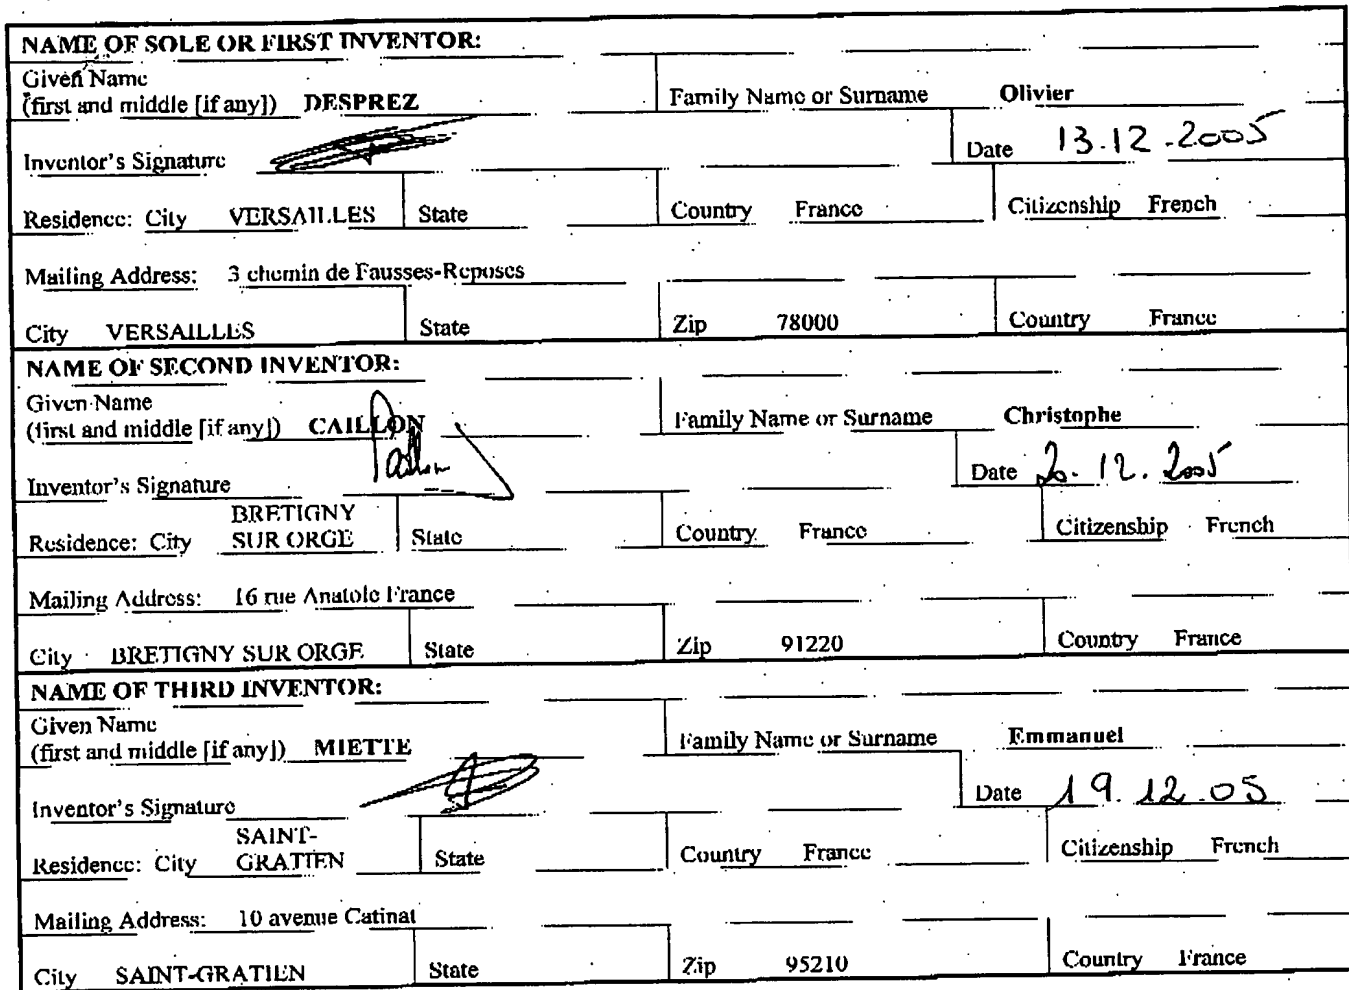 NAME OF SOLE OR FIRST INVENTOR:
Given Name
(first and middle [if any]) DESPREZ Family Name or Surname Olivier
Inventor's Signature Date 13.12.2005
Residence: City VERSAILLES State Country France Citizenship French
Mailing Address: 3 chemin de Fausses-Reposes
City VERSAILLES State Zip 78000 Country France
NAME OF SECOND INVENTOR:
Given Name
(first and middle [if any]) CAILLON Family Name or Surname Christophe
Inventor's Signature Date 20.12.2005
BRETIGNY
Residence: City SUR ORGE State Country France Citizenship French
Mailing Address: 16 rue Anatole France
City BRETIGNY SUR ORGE State Zip 91220 Country France
NAME OF THIRD INVENTOR:
Given Name
(first and middle [if any]) MIETTE Family Name or Surname Emmanuel
Inventor's Signature Date 19.12.05
SAINT-
Residence: City GRATIEN State Country France Citizenship French
Mailing Address: 10 avenue Catinat
City SAINT-GRATIEN State Zip 95210 Country France